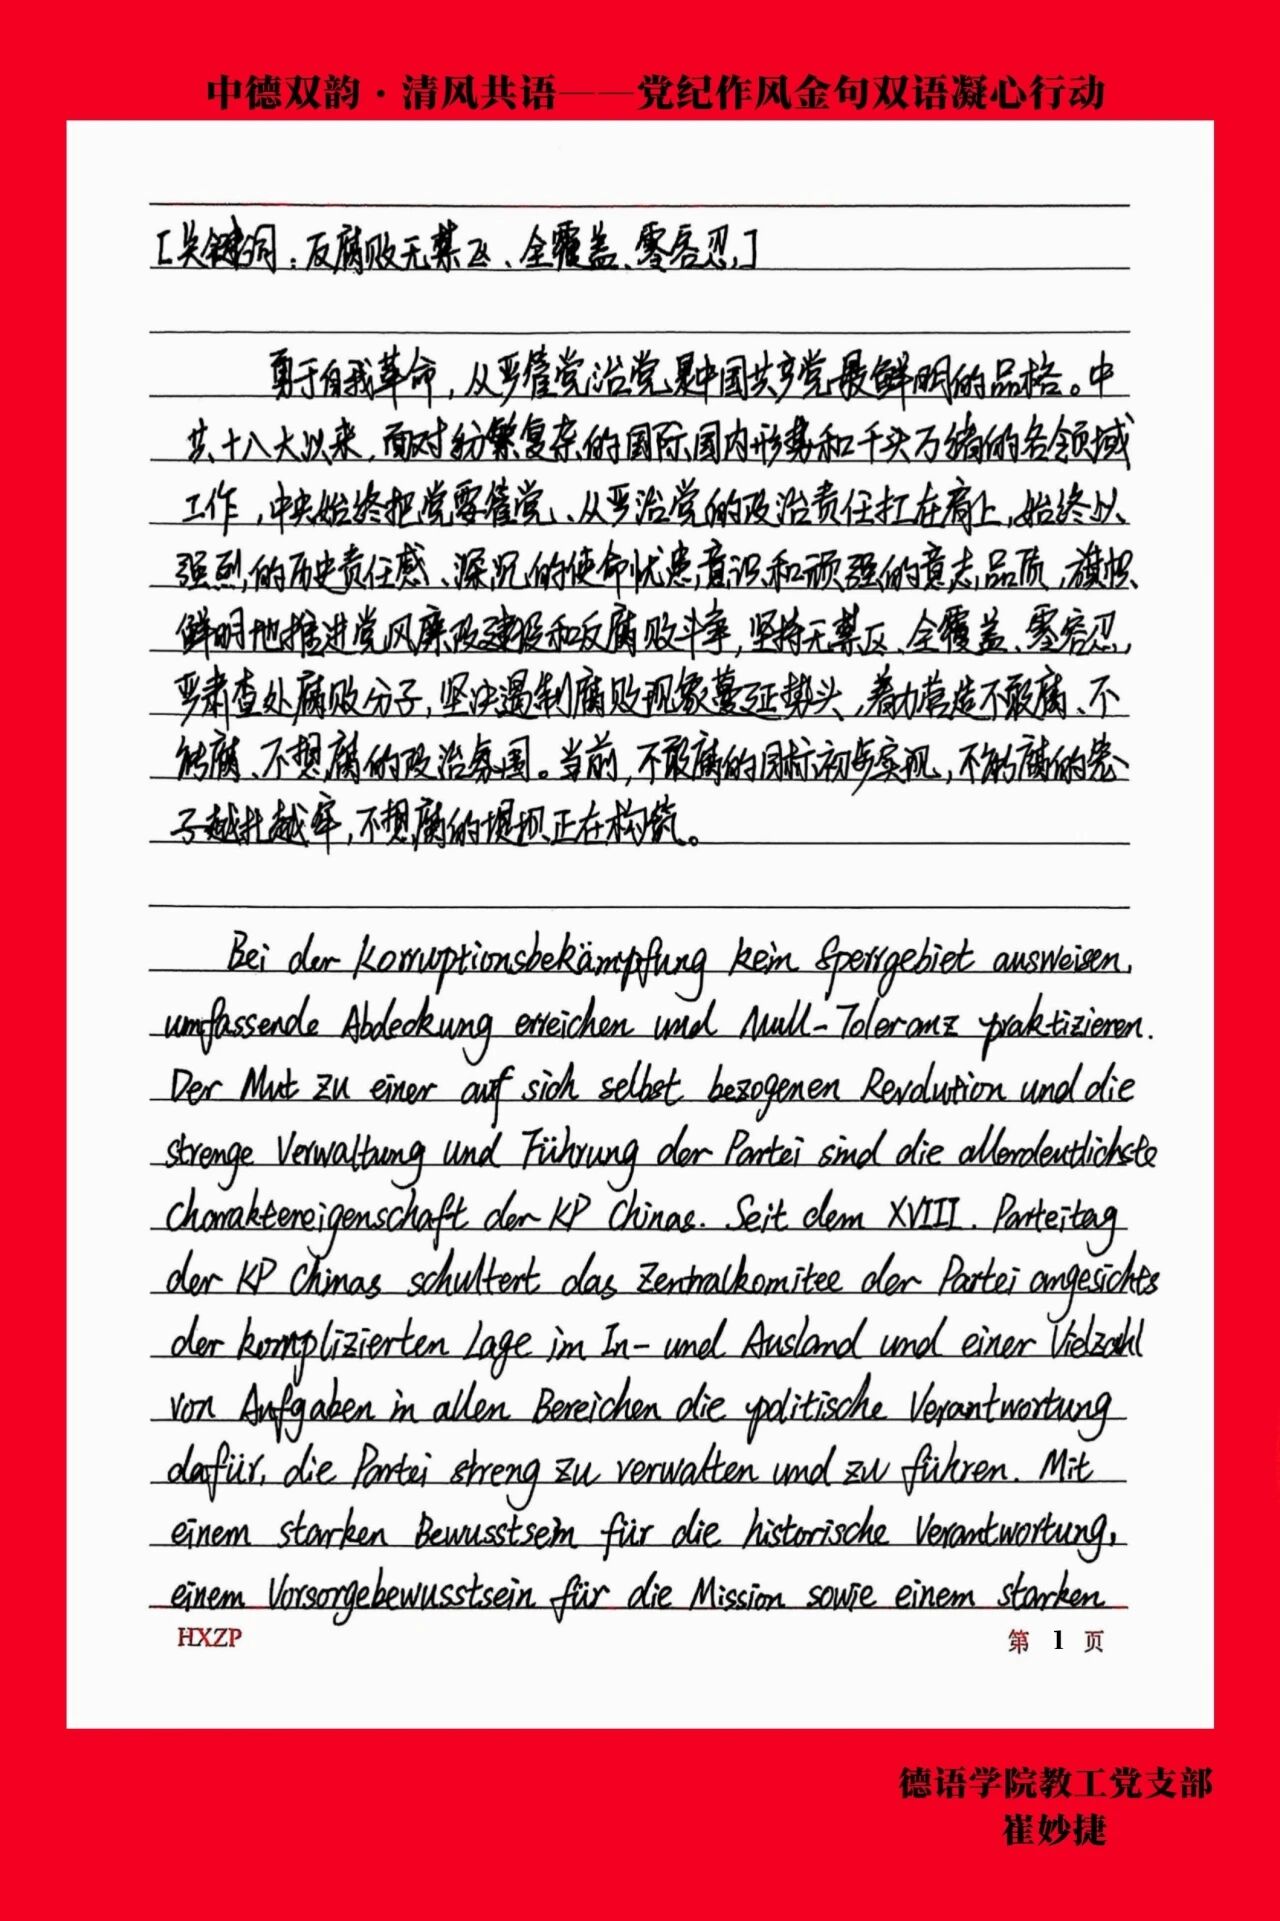 中德双韵·清风共语——党纪作风金句双语凝心行动
[关键词：反腐败无禁区、全覆盖、零容忍]
勇于自我革命，从严管党治党是中国共产党最鲜明的品格。中
共十八大以来，面对纷繁复杂的国际国内形势和千头万绪的各领域
工作，中央始终把党要管党、从严治党的政治责任扛在肩上，始终以
强烈的历史责任感、深沉的使命忧患意识和顽强的意志品质，旗帜
鲜明地推进党风廉政建设和反腐败斗争，坚持无禁区、全覆盖、零容忍，
严肃查处腐败分子，坚决遏制腐败现象蔓延势头，着力营造不敢腐、不
能腐、不想腐的政治氛围。当前，不敢腐的目标初步实现，不能腐的笼
子越扎越牢，不想腐的堤坝正在构筑。
Bei der Korruptionsbekämpfung kein Sperrgebiet ausweisen,
umfassende Abdeckung erreichen und Null-Toleranz praktizieren.
Der Mut zu einer auf sich selbst bezogenen Revolution und die
strenge Verwaltung und Führung der Partei sind die allerdeutlichste
Charaktereigenschaft der KP Chinas. Seit dem XVIII. Parteitag
der KP Chinas schultert das Zentralkomitee der Partei angesichts
der komplizierten Lage im In- und Ausland und einer Vielzahl
von Aufgaben in allen Bereichen die politische Verantwortung
dafür, die Partei streng zu verwalten und zu führen. Mit
einem starken Bewusstsein für die historische Verantwortung,
einem Vorsorgebewusstsein für die Mission sowie einem starken
HXZP 第 1 页
德语学院教工党支部
崔妙捷